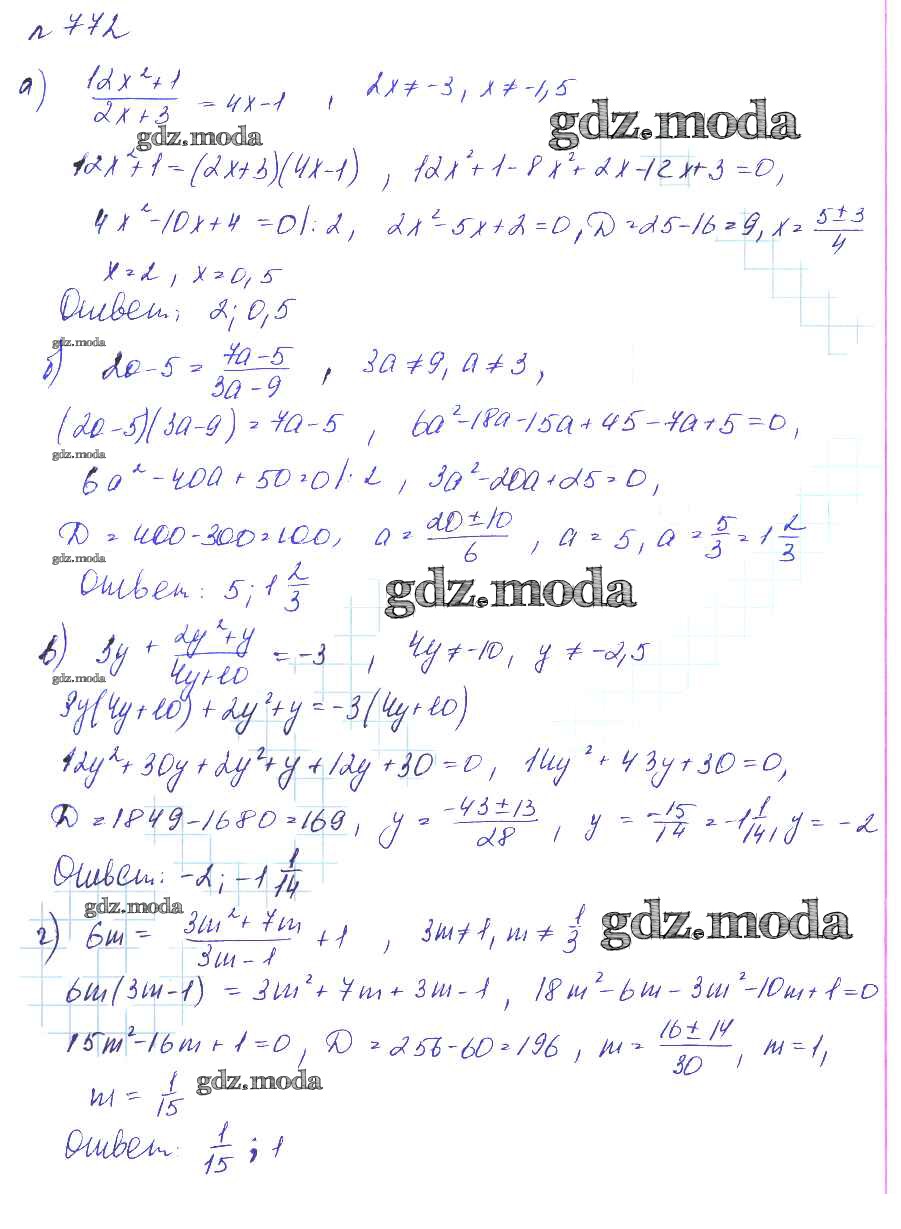 № 772
а) (12x²+1)/(2x+3) = 4x-1 , 2x≠-3, x≠-1,5
gdz.moda gdz.moda
12x²+1=(2x+3)(4x-1) , 12x²+1-8x²+2x-12x+3=0,
4x²-10x+4=0|:2, 2x²-5x+2=0, D=25-16=9, x=(5±3)/4
x=2, x=0,5
Ответ: 2; 0,5
gdz.moda
б) 2a-5=(7a-5)/(3a-9) , 3a≠9, a≠3,
(2a-5)(3a-9)=7a-5 , 6a²-18a-15a+45-7a+5=0,
gdz.moda
6a²-40a+50=0|:2 , 3a²-20a+25=0,
D=400-300=100, a=(20±10)/6 , a=5, a=5/3=1 2/3
gdz.moda
Ответ: 5; 1 2/3
gdz.moda
в) 3y+(2y²+y)/(4y+10)=-3 , 4y≠-10, y≠-2,5
gdz.moda
3y(4y+10)+2y²+y=-3(4y+10)
12y²+30y+2y²+y+12y+30=0, 14y²+43y+30=0,
D=1849-1680=169, y=(-43±13)/28 , y=-15/14=-1 1/14, y=-2
Ответ: -2; -1 1/14
gdz.moda
г) 6m=(3m²+7m)/(3m-1)+1 , 3m≠1, m≠1/3
gdz.moda
6m(3m-1)=3m²+7m+3m-1 , 18m²-6m-3m²-10m+1=0
15m²-16m+1=0, D=256-60=196, m=(16±14)/30, m=1,
m=1/15
gdz.moda
Ответ: 1/15; 1